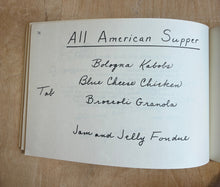 All American Supper
Bologna Kabobs
Blue Cheese Chicken
Tat
Broccoli Granola
Jam and Jelly Fondue